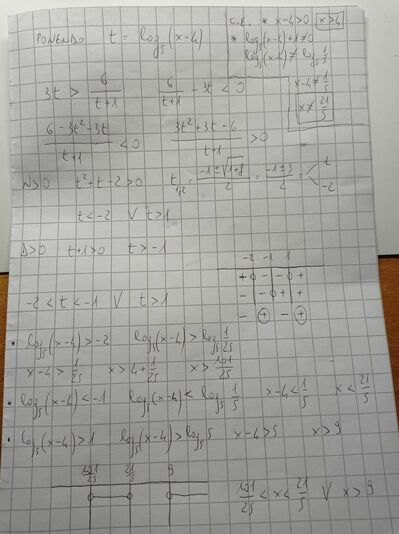 PONENDO t = log₅(x-4)
C.E. * x-4>0 x>4
* log₅(x-4)+1≠0
log₅(x-4) ≠ log₅ 1/5
x-4≠1/5
x≠21/5
3t > 6/(t+1) 6/(t+1) - 3t < 0
(6-3t²-3t)/(t+1) < 0 (3t²+3t-6)/(t+1) > 0
N>0 t²+t-2>0 t₁/₂ = (-1±√(1+8))/2 = (-1±3)/2 = 1 -2
t<-2 V t>1
D>0 t+1>0 t>-1
-2 -1 1
+ 0 - - 0 +
- - 0 + +
- + - +
-2<t<-1 V t>1
• log₅(x-4)>-2 log₅(x-4)>log₅ 1/25
x-4>1/25 x>4+1/25 x>101/25
• log₅(x-4)<-1 log₅(x-4)<log₅ 1/5 x-4<1/5 x<21/5
• log₅(x-4)>1 log₅(x-4)>log₅5 x-4>5 x>9
101/25 21/5 9
101/25<x<21/5 V x>9